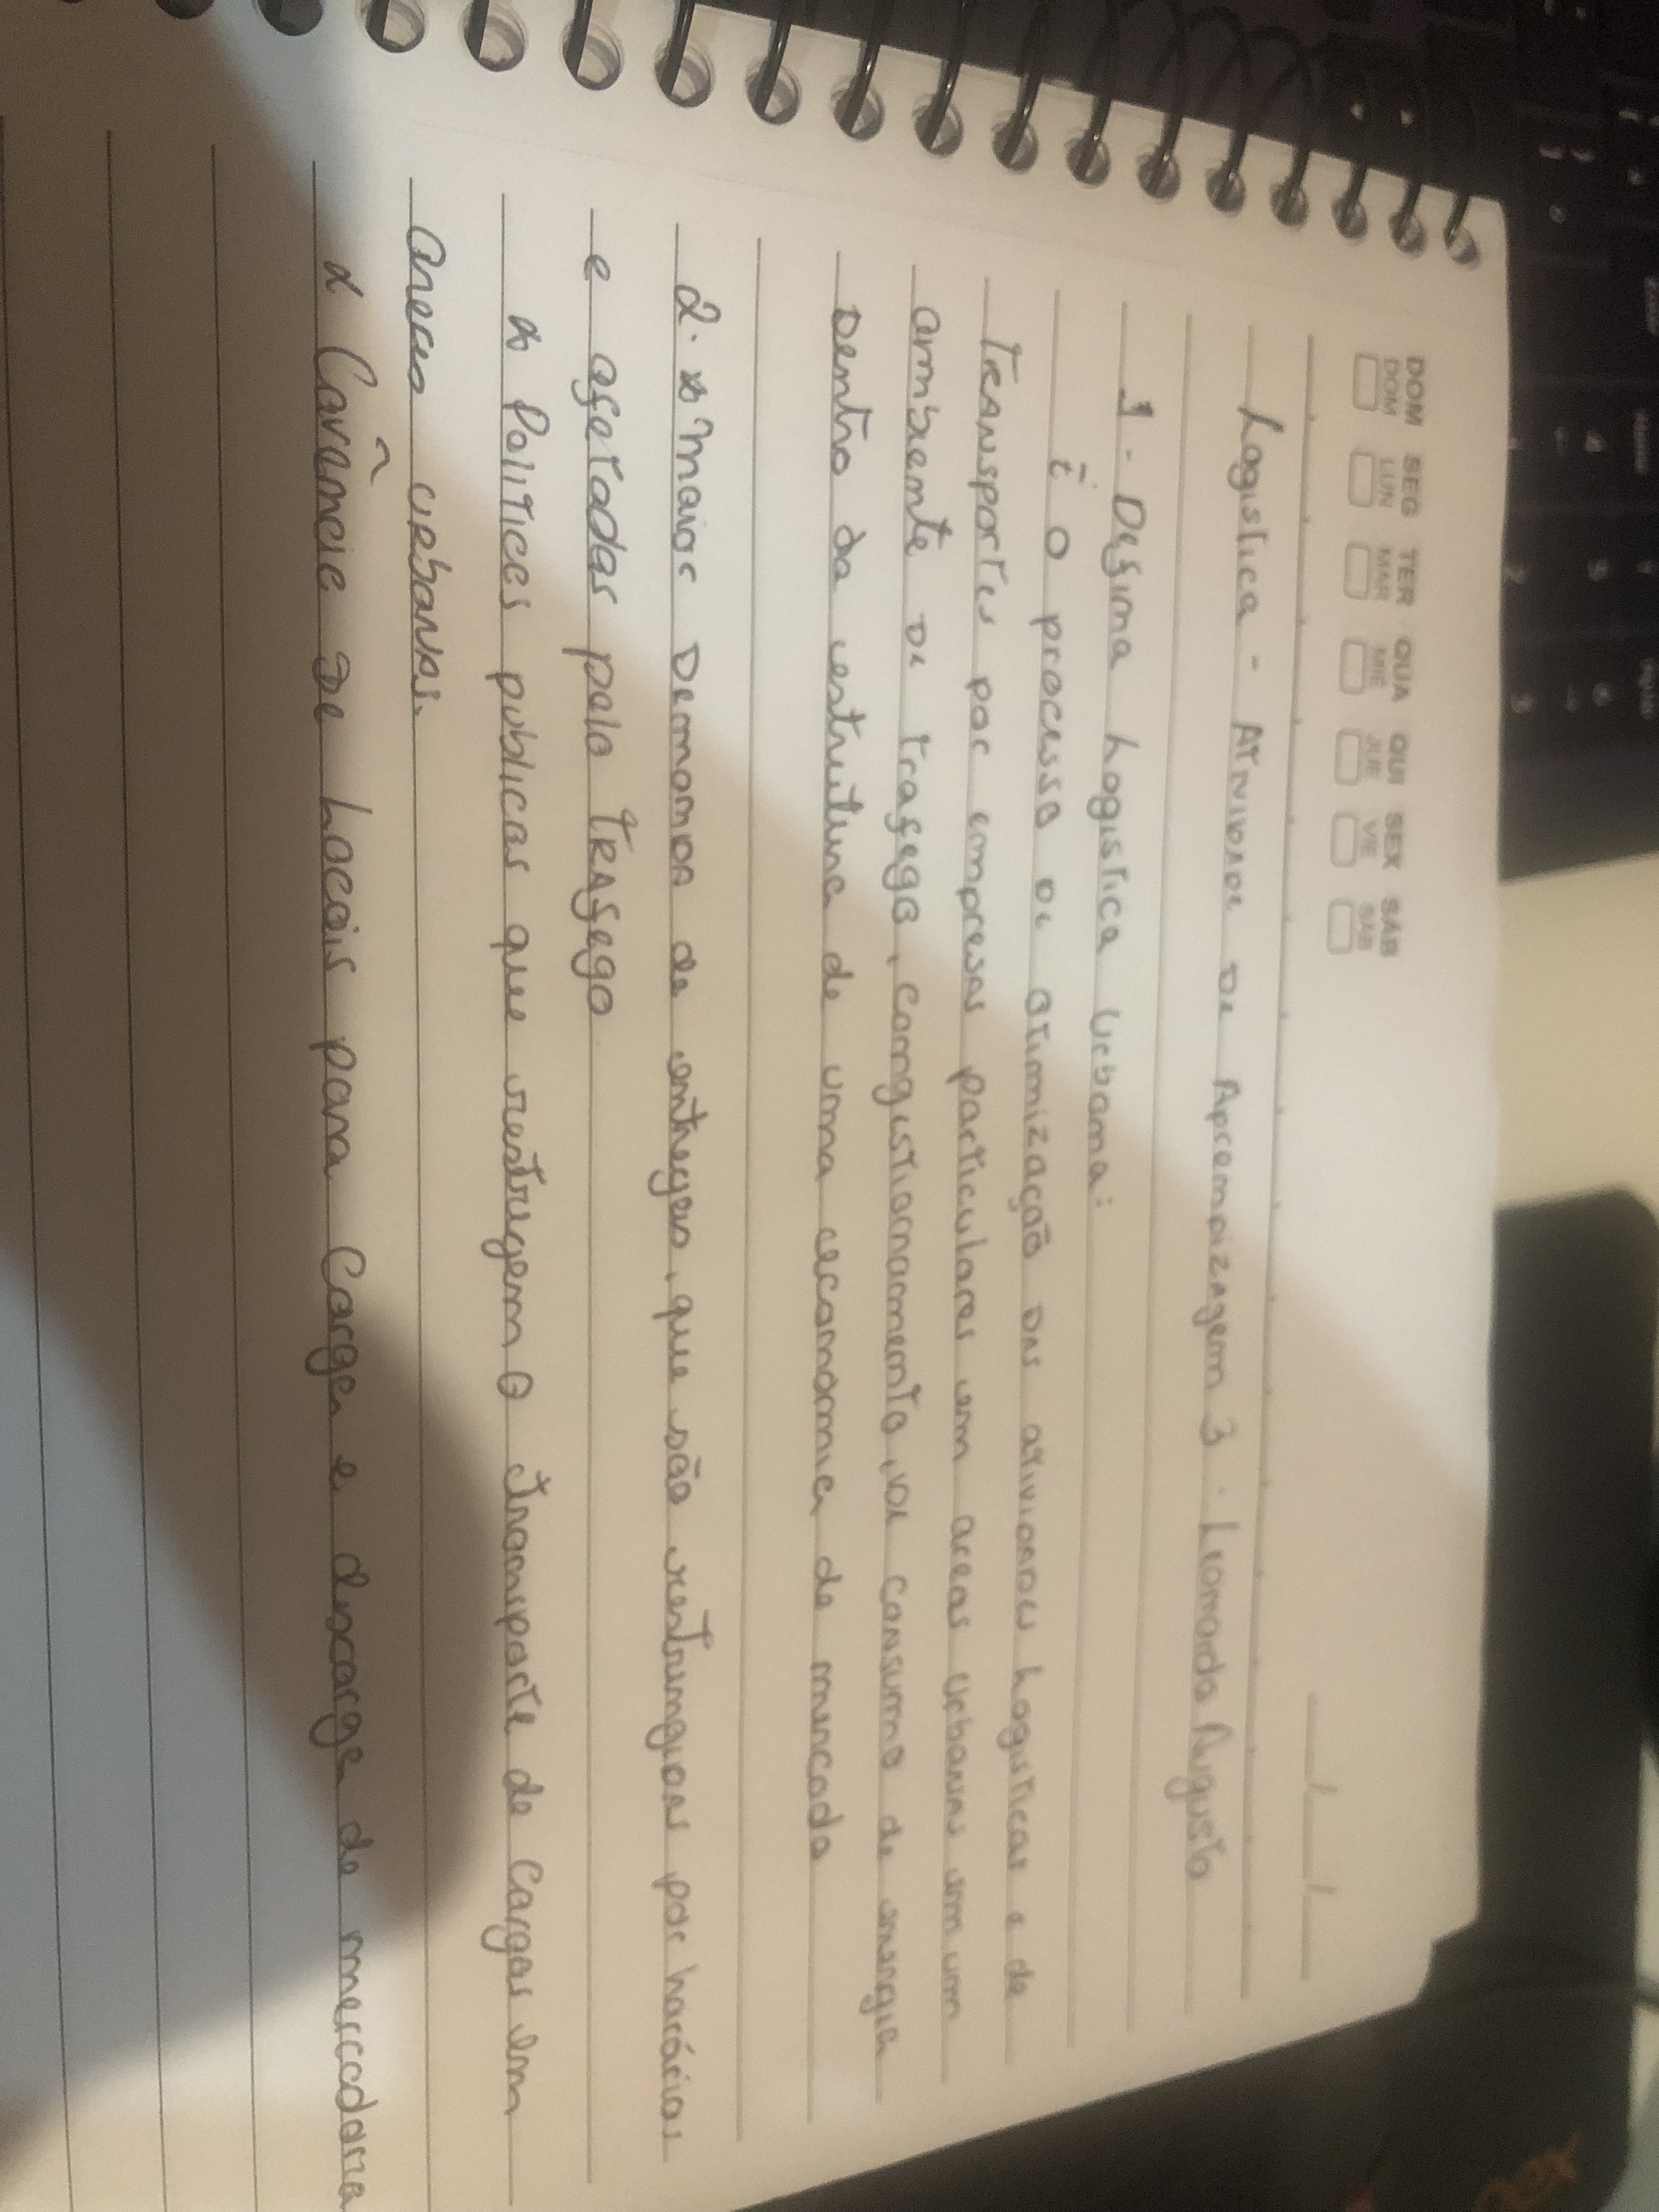 DOM SEG TER QUA QUI SEX SÁB
DOM LUN MAR MIE JUE VIE SÁB
Logistica - Atividade de Aprendizagem 3 - Leonardo Augusto
1 - Defina Logistica Urbana:
É o processo de otimização das atividades Logisticas e de
Transportes por empresas particulares em areas urbanas em um
ambiente de trafego, congestionamento, de consumo de energia
Dentro da estrutura de uma economia de mercado
2. Maior Demanda de entregas, que são restringidas por horários
e afetadas pelo trafego
Politicas publicas que restrigem o transporte de cargas em
areas urbanas.
Carência de Locais para Carga e descarga de mercadoria